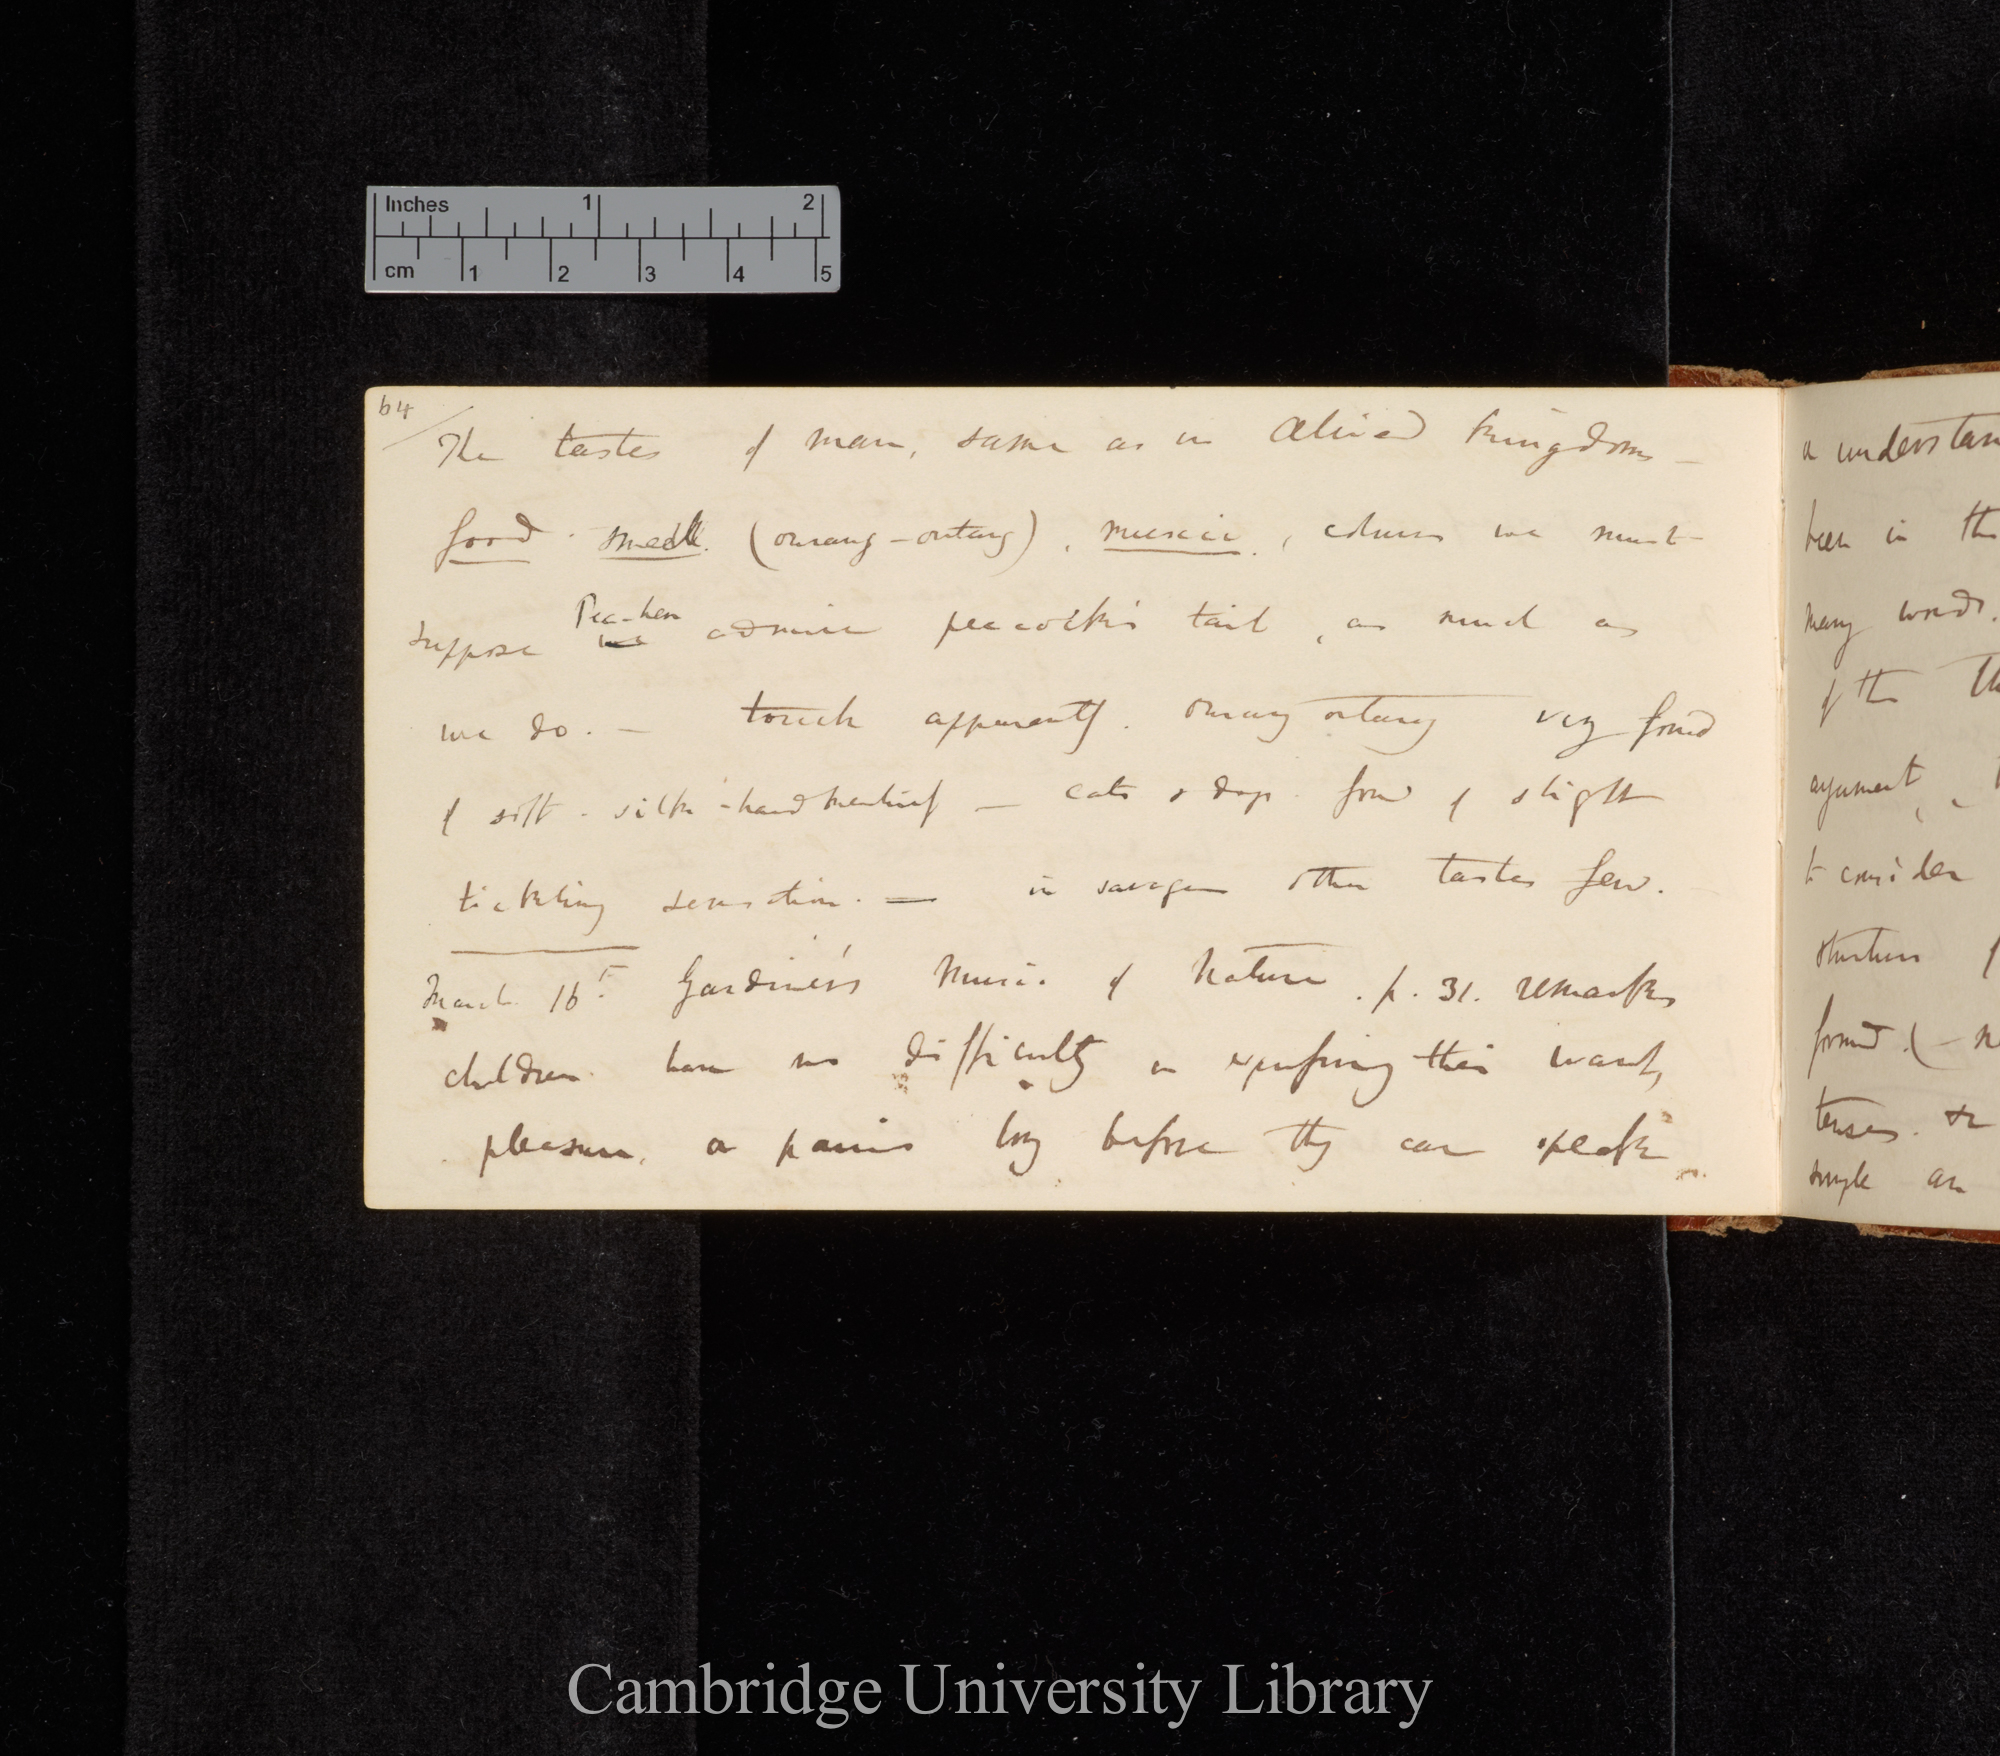 Inches 1 2
cm 1 2 3 4 5
64
The tastes of man, same as in Allied Kingdoms —
food, smell (ourang-outang), music, colours we must
suppose Pea-hen admire peacock's tail, as much as
we do. — touch apparently. ourang outang very fond
of soft, silk-handkerchief — cats & dogs fond of slight
tickling sensation. — in savages other tastes few.
March 16th Gardiner's Music of Nature. p. 31. remarks
children have no difficulty in expressing their wants,
pleasures, or pains long before they can speak
a understan
been in the
many words.
of the Th
argument,
to consider
structure of
formed. (—
tenses &
simple an
Cambridge University Library